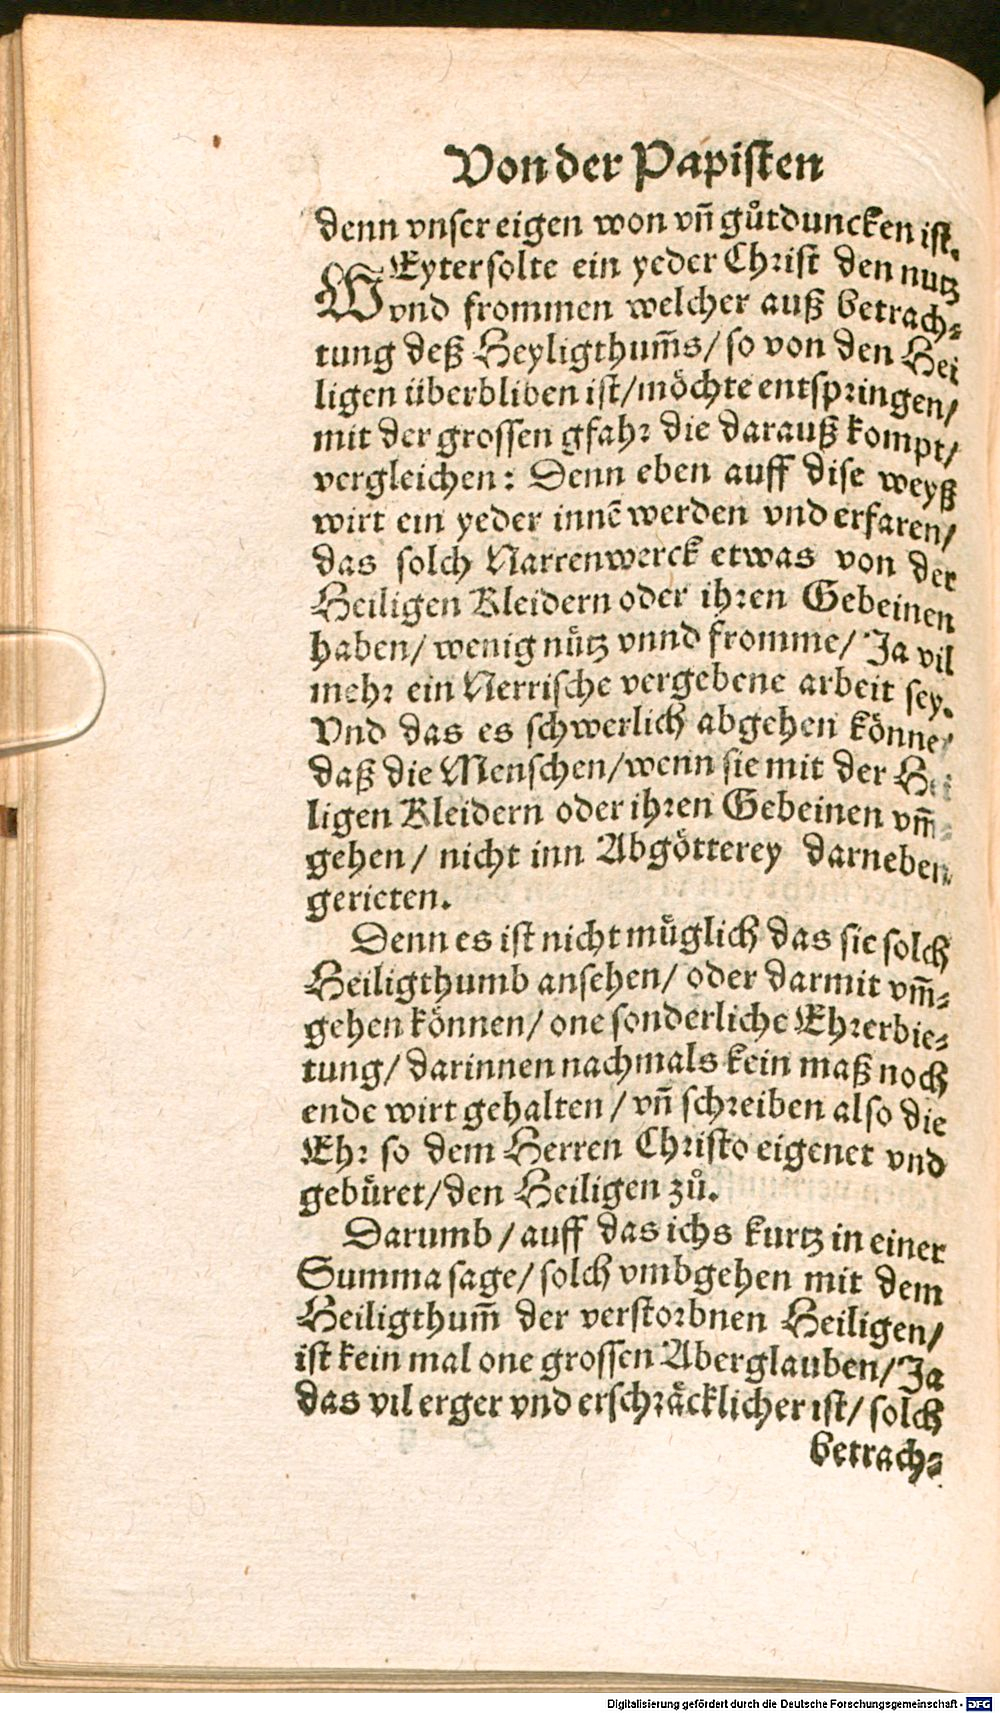 Von der Papisten
denn vnser eigen won vñ gůtduncken ist.
WEyter solte ein yeder Christ den nutz
vnd frommen welcher auß betrach⸗
tung deß Heyligthum̃s/ so von den Hei
ligen überbliben ist/ möchte entspringen/
mit der grossen gfahr die darauß kompt/
vergleichen: Denn eben auff dise weyß
wirt ein yeder innẽ werden vnd erfaren/
das solch Narrenwerck etwas von der
Heiligen Kleidern oder ihren Gebeinen
haben/ wenig nütz vnnd fromme/ Ja vil
mehr ein Nerrische vergebene arbeit sey.
Vnd das es schwerlich abgehen könne/
daß die Menschen/ wenn sie mit der Hei
ligen Kleidern oder ihren Gebeinen vm̃⸗
gehen/ nicht inn Abgötterey darneben
gerieten.
Denn es ist nicht müglich das sie solch
Heiligthumb ansehen/ oder darmit vm̃⸗
gehen können/ one sonderliche Ehrerbie⸗
tung/ darinnen nachmals kein maß noch
ende wirt gehalten/ vñ schreiben also die
Ehr so dem Herren Christo eigenet vnd
gebüret/ den Heiligen zů.
Darumb/ auff das ichs kurtz in einer
Summa sage/ solch vmbgehen mit dem
Heiligthum̃ der verstorbnen Heiligen/
ist kein mal one grossen Aberglauben/ Ja
das vil erger vnd erschräcklicher ist/ solch
betrach⸗
Digitalisierung gefördert durch die Deutsche Forschungsgemeinschaft - DFG